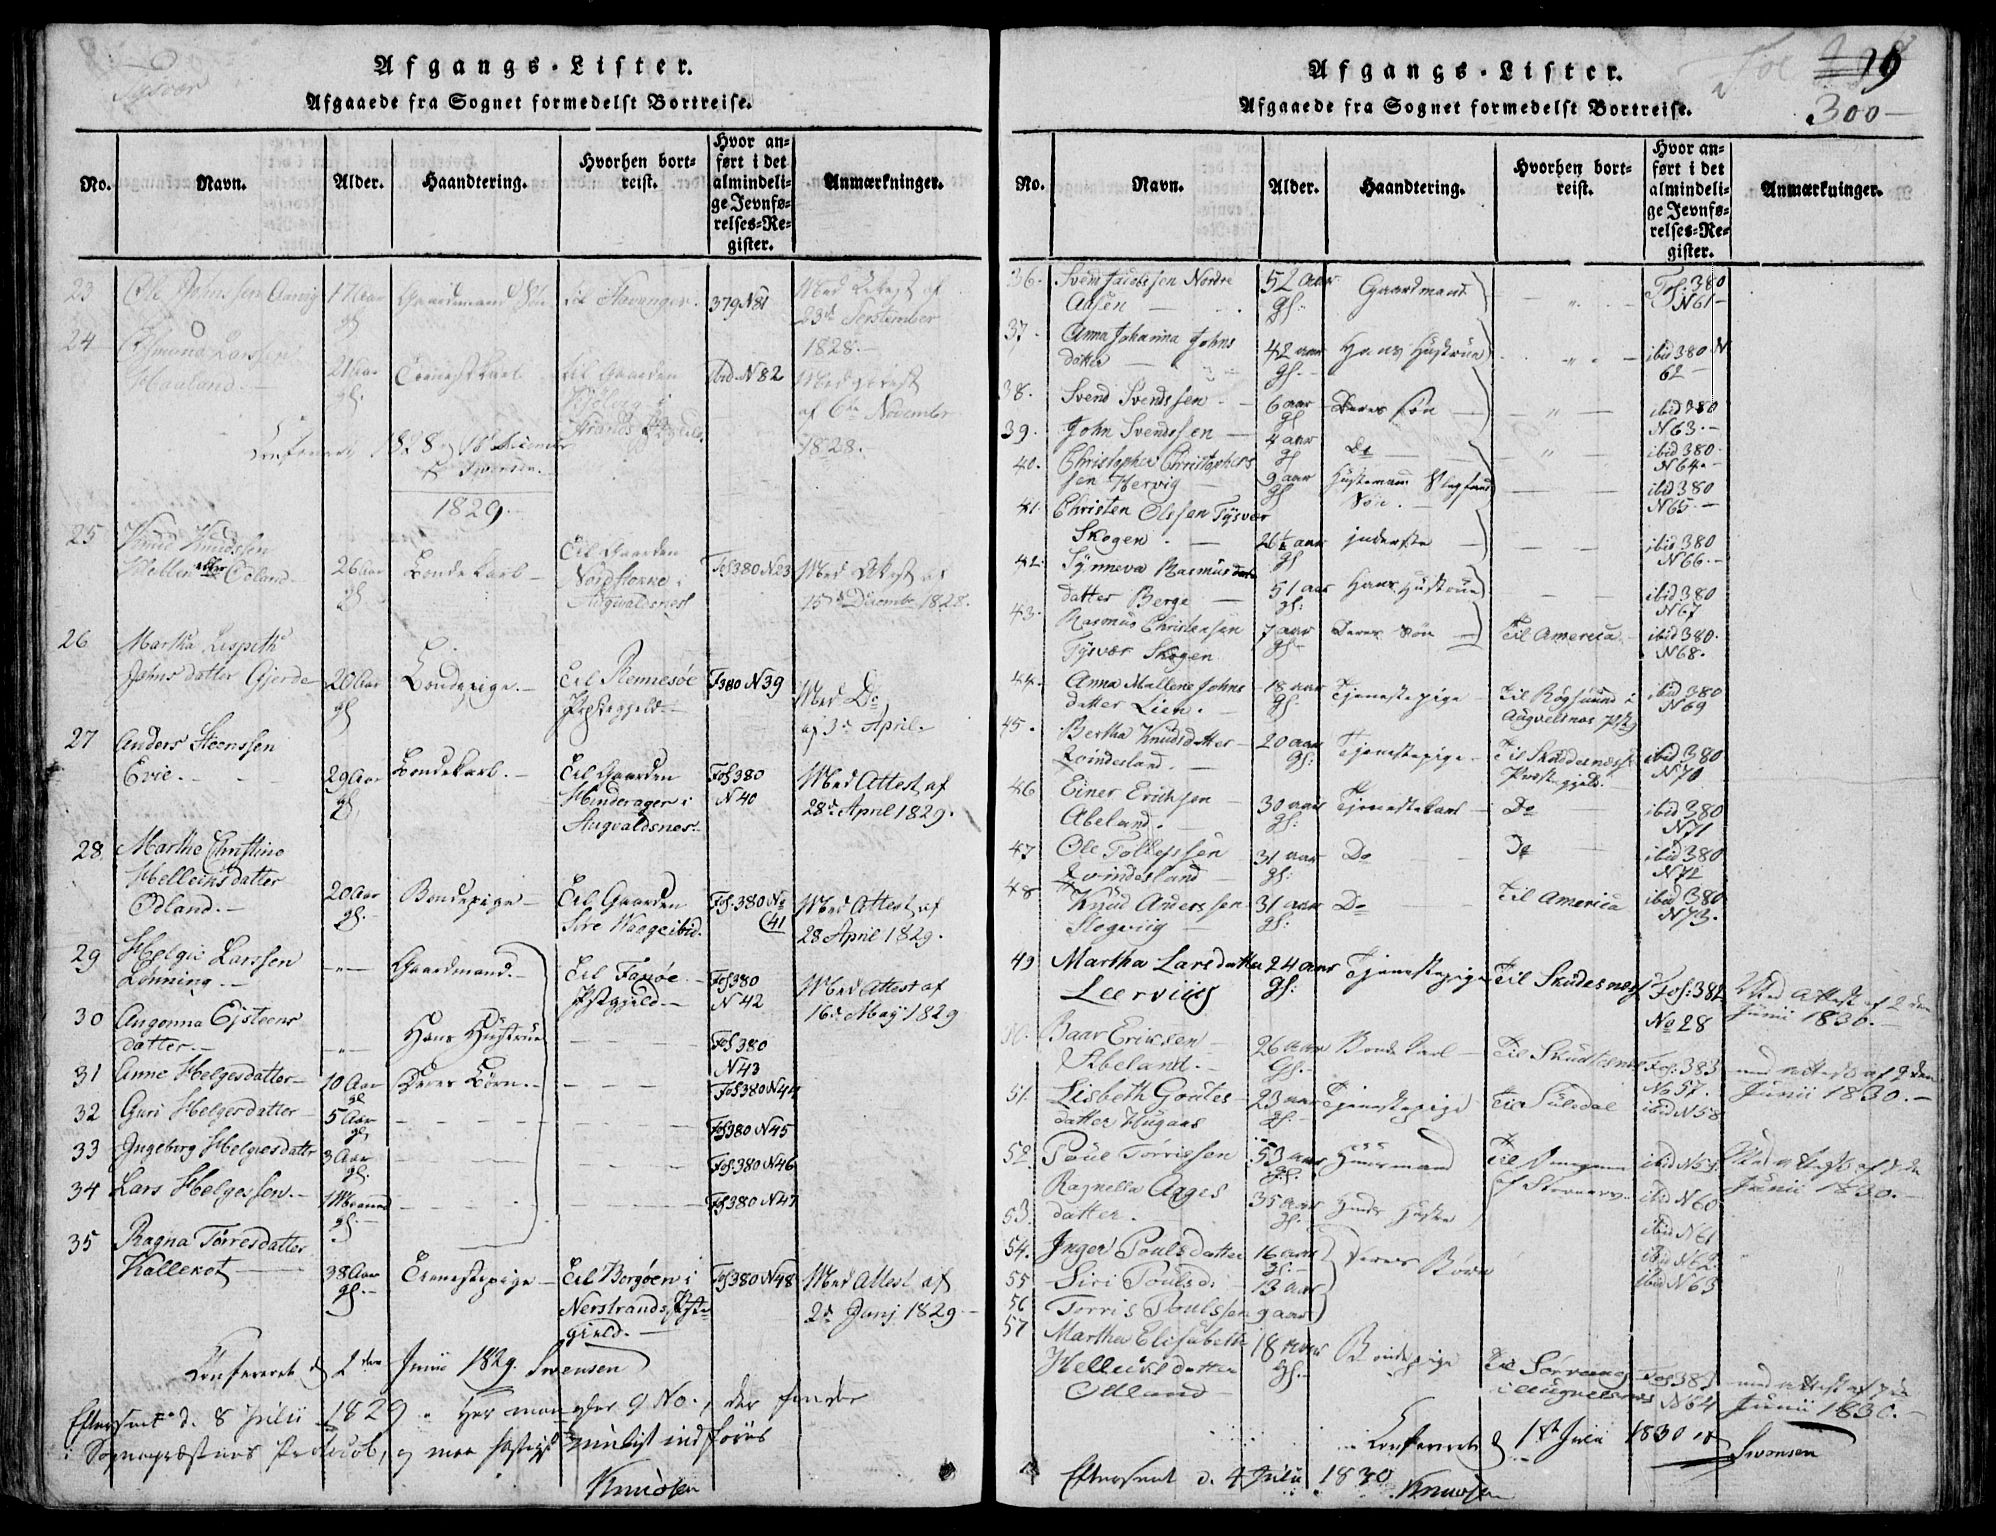 Tysvær
Afgangs-Lister.
Afgaaede fra Sognet formedelst Bortreise.
No. Navn. Alder. Haandtering. Hvorhen bortreist. Hvor anført i det almindelige Jevnførelses-Register. Anmærkninger.
23 Ole Johnssen Aarvig 17 Aar gl Gaardmands Søn til Stavanger. 379 N81 Med Attest af
23de September
1828.
24 Asmund Larssen
Haaland. 21 Aar gl. Tienestkarl til Gaarden ibid N 82 Med Attest
af 6te November
1828.
Confereret 1828, 16 December
Svensen
1829.
25 Knud Knudssen
eller Ødland 26 Aar gl. Bondekarl til Gaarden
i
Augvaldsnes Fol 380 N23 Med Attest af
15de Decembr 1828.
26 Martha Lispeth
Johnsdatter Gjerde 20 Aar gl Bondepige. til Rennesøe
Præstegjeld F380 N39 Med Do
af 3de April
27 Anders Steenssen
Evie. 29 Aar gl. Bondekarl. til Gaarden
Hinderager i
Augvaldsnes. Fol 380
N 40 Med Attest af
28de April 1829.
28 Marthe Christine
Hellicksdatter
Odland. 20 Aar gl. Bondepige til Gaarden
Stre Waage ibid. Fol. 380 No
41 Med Attest af
28 April 1829.
29 Helgie Larssen
Lønning. Gaardmand. til
Pstgjeld. Fol 380
N 42 Med Attest af
16de May 1829
30 Angonna Ejsteens
datter. Hans Hustrue Fol 380
N43
31 Anne Helgesdatter 10 Aar gl Deres Børn. Fol 380 N44
32 Guri Helgesdatter 5 Aar gl. Fol 380 N45
33 Ingeborg Helgiesdatter 3 Aar gl. Fol 380 N46
34 Lars Helgessen. 1 Maaned gl. Fol 380 N47
35 Ragna Tørresdatter
Kallekot 38 Aar gl. Tienestepige til Borgøen i
Nerstrands Pst-
gield. Fol 380 N48 Med Attest af
2de Junj 1829
Confereret d 2den Junii 1829. Svensen
Efterseet d. 8 Julii 1829. Her mangler 9 No., der findes
i Sognepræstens Protocol, og maa hastigst muligst indføres
Knudsen
Afgangs-Lister.
Afgaaede fra Sognet formedelst Bortreise.
Fol 300
No. Navn. Alder. Haandtering. Hvorhen bortreist. Hvor anført i det almindelige Jevnførelses-Register. Anmærkninger.
36. Svend Jacobssen Nordre
Aasen 52 aar gl: Gaardmand Fol: 380
N61
37. Anna Johanna Johns
datter 42 aar gl. Hans Hustrue ibid 380 N
62
38. Svend Svendssen 6 aar gl Deres Søn ibid 380
N63.
39. John Svendssen 4 aar gl Do ibid 380
N64.
40. Christopher Christophers
sen Hervig 9 aar gl Huusmand Søn. ibid 380
N65.
41. Christen Olssen Tysvær
Skogen. 26½ aar gl inderste ibid 380
N66.
42. Synneva Rasmus
datter Berge 51 aar gl: Hans Hustrue ibid 380
N67
43. Rasmus Christensen
Tysvær Skogen 7 aar gl. Deres Søn Til America ibid 380.
N68.
44. Anna Mallene Johns
datter Lien. 18 aar gl: Tjenestepige Til Røgsund i
Augvelsnes Pstg ibid 380
N69
45. Bertha Knudsdatter
Qvindesland. 20 aar gl: Tjenestepige Til Skudesnes
Præstegjeld. ibid 380
N70
46 Einer Erichsen
Abeland. 30 aar gl: Tjenestekarl Do ibid 380
N71
47 Ole Tollefssen
Qvindesland 31 aar gl. Do Do ibid 380
N72
48 Knud Anderssen
Slogviig 31 aar gl: Do Til America ibid 380
N73.
49 Martha Larsdatter
Leerviig 24 aar gl: Tjenestepige Til Skudesnes Fol: 382
No 28 Med Attest af 2den
Junii 1830.
50. Baar Ericksen
Abeland. 26 aar gl. Bondekarl Til Skudesnes Fol: 383
No 57. med attest af 2den
Junii 1830.
51. Lisbeth Goutes
datter Hugaas 23 aar gl. Tjenestepige Til Suledal ibid N58
52. Poul Torrissen 53 aar gl. Huusmand Til ibid N59 Med attest af 7de
Junii 1830.
53. Ragnella Aages
datter. 35 aar gl. Hans Hustrue ibid N60
54. Inger Poulsdatter 16 aar gl. Deres Børn ibid N61
55 Siri Poulsd: 13 aar ibid N62
56 Torris Poulssen 9 aar ibid N63
57 Martha Elisabeth
Hellicksdatter
Odland 18 aar gl. Bondepige Til
i Augvelsnes Fol 383
N64 med attest af 7de
Junii 1830.
Confereret d 1ste Julii 1830. Svensen
Efterseet d. 4 Julii 1830. Knudsen